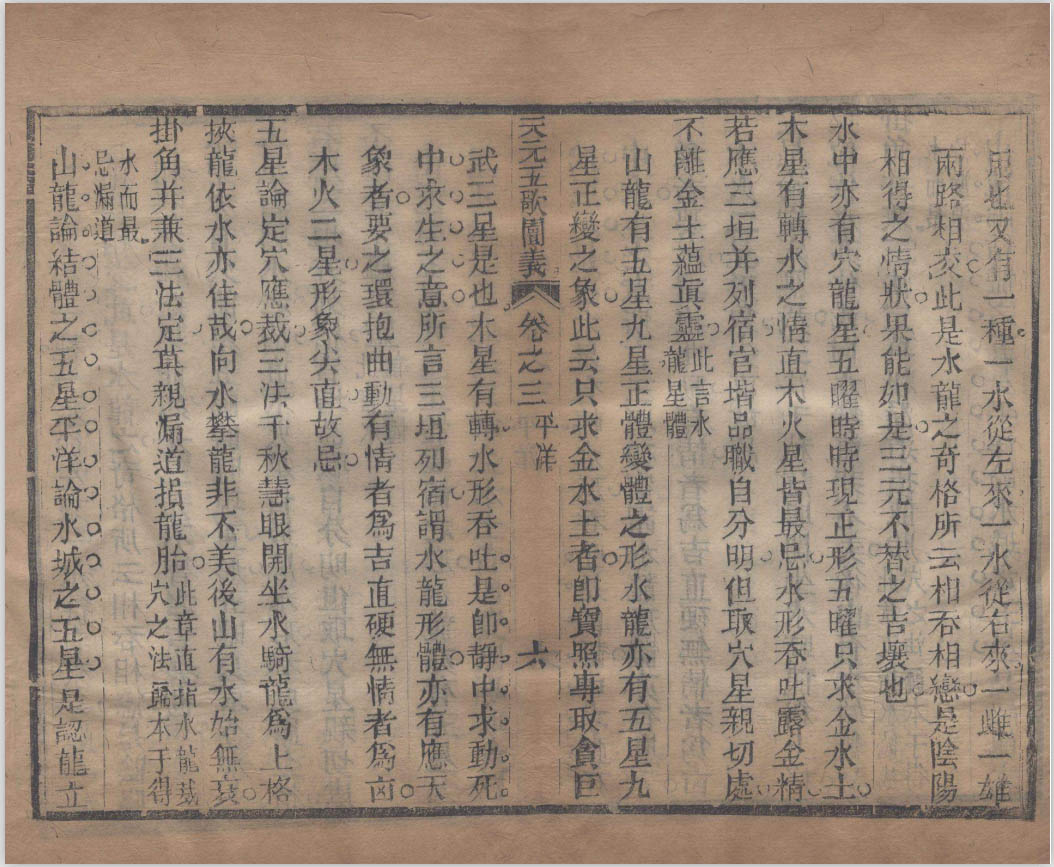 局也又有一種一水從左來一水從右來一雌一雄
兩路相交此是水龍之奇格所云相吞相戀是陰陽
相得之情狀果能如是三元不替之吉壤也
水中亦有穴龍星五曜時時現正形五曜只求金水土
木星有轉水之情直木火星皆最忌水形吞吐露金精
若應三垣并列宿官堦品職自分明但取穴星親切處
不離金土蘊眞靈此言水龍星體
山龍有五星九星正體變體之形水龍亦有五星九
星正變之象此云只求金水土者卽寶照專取貪巨
天元五歌闡義 卷之三 平洋 六
武三星是也木星有轉水形吞吐是卽靜中求動死
中求生之意所言三垣列宿謂水龍形體亦有應天
象者要之環抱曲動有情者爲吉直硬無情者爲凶
木火二星形象尖直故忌
五星論定穴應裁三法千秋慧眼開坐水騎龍爲上格
挾龍依水亦佳哉向水攀龍非不美後山有水始無哀
掛角并兼三法定莫親漏道損龍胎此章直指水龍裁穴之法龥本于得
水而最忌漏道
山龍論結體之五星平洋論水城之五星是認龍立